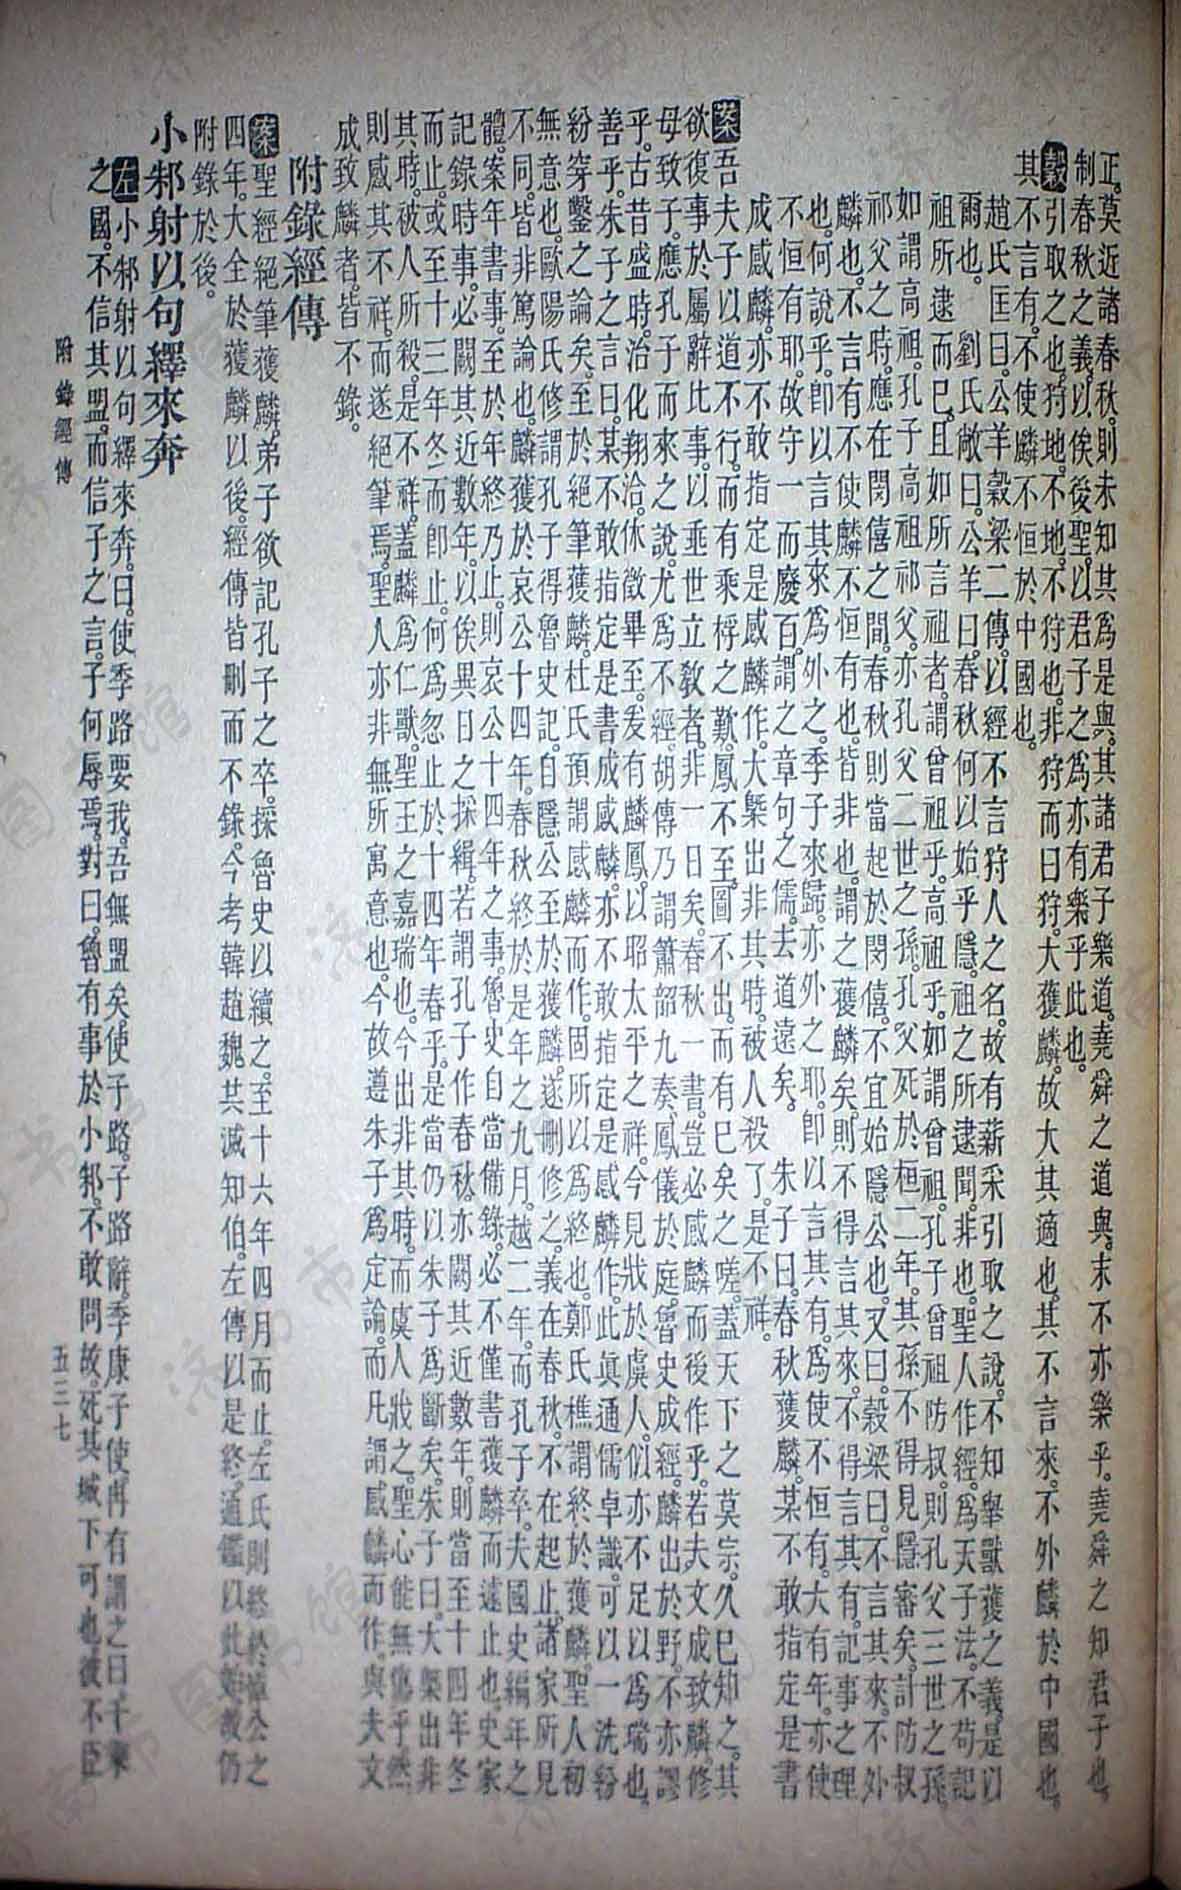 正。莫近諸春秋。則未知其爲是與。其諸君子樂道。堯舜之道與。末不亦樂乎。堯舜之知君子也。
制春秋之義。以俟後聖。以君子之爲。亦有樂乎此也。
穀引取之也。狩地不地。不狩也。非狩而曰狩。大獲麟。故大其適也。其不言來。不外麟於中國也。
其不言有。不使麟不恒於中國也。
趙氏匡曰。公羊穀梁二傳。以經不言狩人之名。故有薪采引取之說。不知舉獸獲之義。是以
爾也。劉氏敞曰。公羊曰。春秋何以始乎隱。祖之所逮聞。非也。聖人作經。爲天子法。不苟記
祖所逮而已。且如所言祖者。謂曾祖乎。高祖乎。如謂曾祖。孔子曾祖防叔。則孔父三世之孫
如謂高祖。孔子高祖祁父。亦孔父二世之孫。孔父死於桓二年。其孫不得見隱審矣。計防叔
祁父之時。應在閔僖之間。春秋則當起於閔僖。不宜始隱公也。又曰。穀梁曰。不言其來。不外
麟也。不言有。不使麟不恒有也。皆非也。謂之獲麟矣。則不得言其來。不得言其有。記事之理
也。何說乎。卽以言其來爲外之。季子來歸。亦外之耶。卽以言其有爲使不恒有。大有年。亦使
不恒有耶。故守一而廢百。謂之章句之儒。去道遠矣。朱子曰。春秋獲麟。某不敢指定是書
成感麟。亦不敢指定是感麟作。大槩出非其時。被人殺了。是不祥。
案吾夫子以道不行。而有乘桴之歎。鳳不至。圖不出。而有已矣之嗟。蓋天下之莫宗。久已知之。其
欲復事於屬辭比事。以垂世立敎者。非一日矣。春秋一書。豈必感麟而後作乎。若夫文成致麟。修
母致子。應孔子而來之說。尤爲不經。胡傳乃謂簫韶九奏。鳳儀於庭。魯史成經。麟出於野。不亦謬
乎。古昔盛時。治化翔洽。休徵畢至。爰有麟鳳。以昭太平之祥。今見戕於虞人。似亦不足以爲瑞也。
善乎。朱子之言曰。某不敢指定是書成感麟。亦不敢指定是感麟作。此眞通儒卓識。可以一洗紛
紛穿鑿之論矣。至於絕筆獲麟。杜氏預謂感麟而作。固所以爲終也。鄭氏樵謂終於獲麟。聖人初
無意也。歐陽氏修謂孔子得魯史記。自隱公至於獲麟。遂刪修之。義在春秋。不在起止。諸家所見
不同。皆非篤論也。麟獲於哀公十四年。春秋終於是年之九月。越二年。而孔子卒。夫國史編年之
體。案年書事。至於年終乃止。則哀公十四年之事。魯史自當備錄。必不僅書獲麟而遠止也。史家
記錄時事。必闕其近數年。以俟異日之採緝。若謂孔子作春秋。亦闕其近數年。則當至十四年冬
而止。或至十三年冬而卽止。何爲忽止於十四年春乎。是當仍以朱子爲斷矣。朱子曰。大槩出非
其時。被人所殺。是不祥。蓋麟爲仁獸。聖王之嘉瑞也。今出非其時。而虞人戕之。聖心能無傷乎。然
則感其不祥。而遂絕筆焉。聖人亦非無所寓意也。今故遵朱子爲定論。而凡謂感麟而作。與夫文
成致麟者。皆不錄。
附錄經傳
案聖經絕筆獲麟。弟子欲記孔子之卒。採魯史以續之。至十六年四月而止。左氏則終於悼公之
四年。大全於獲麟以後。經傳皆刪而不錄。今考韓趙魏共滅知伯。左傳以是終。通鑑以此始。故仍
附錄於後。
小邾射以句繹來奔
左小邾射以句繹來奔。曰。使季路要我。吾無盟矣。使子路。子路辭。季康子使冉有謂之曰。千乘
之國。不信其盟。而信子之言。子何辱焉。對曰。魯有事於小邾。不敢問故。死其城下可也。彼不臣
附錄經傳
五三七